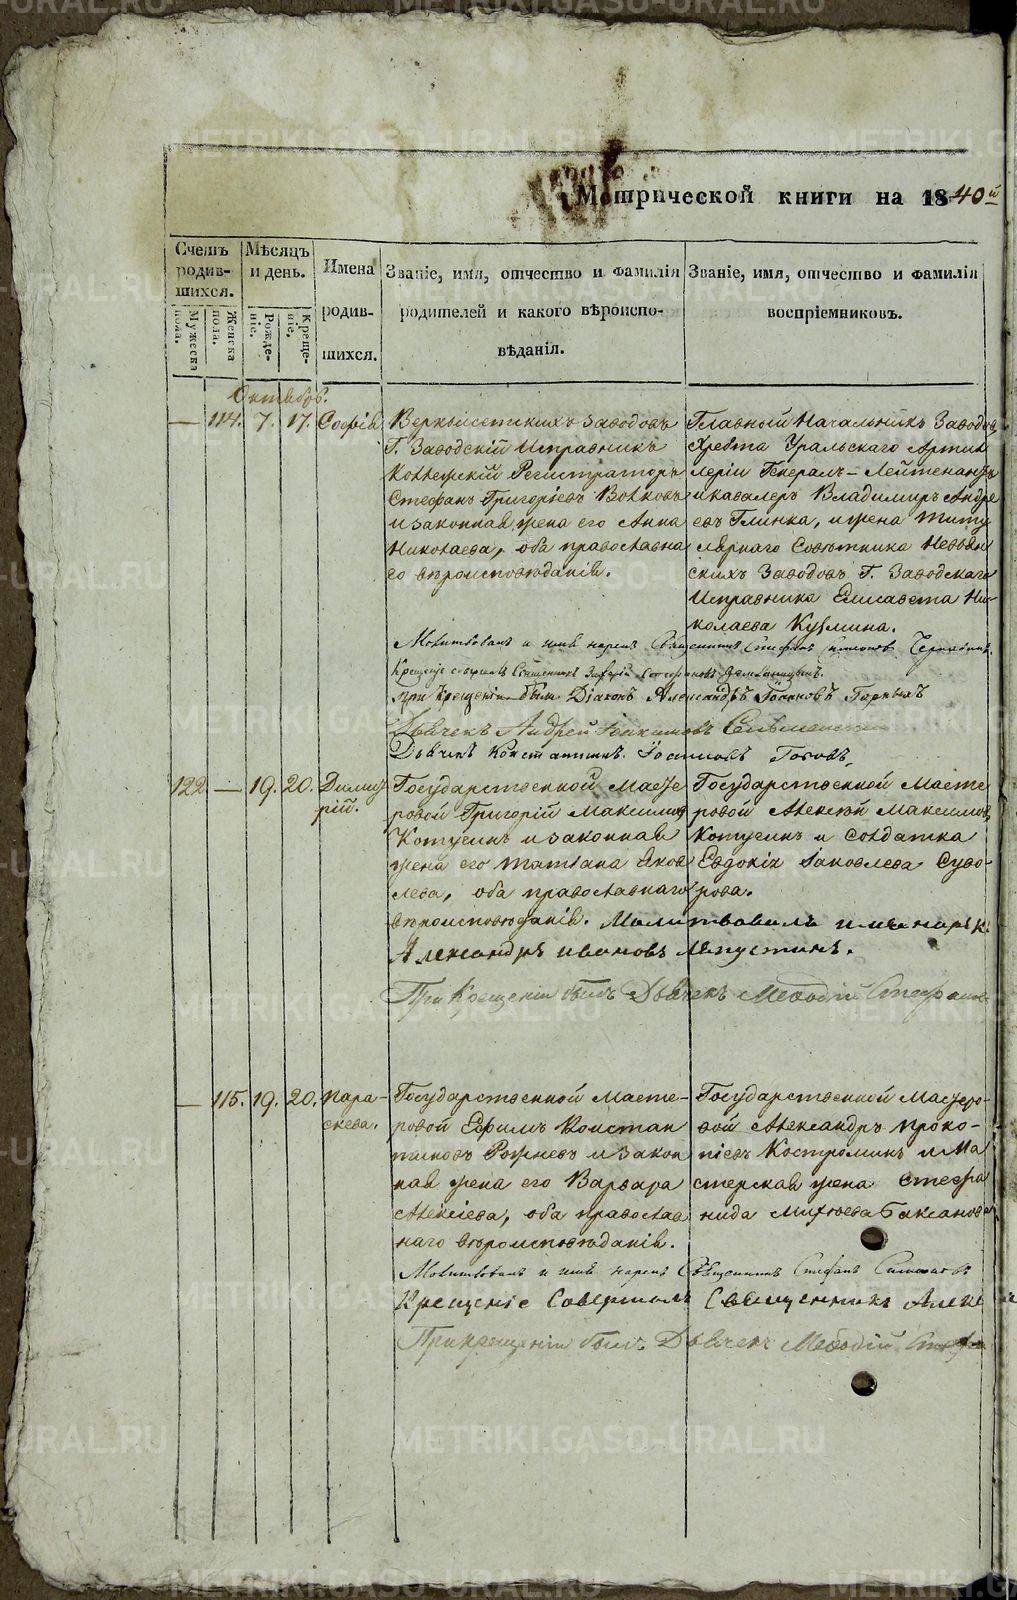 Метрической книги на 1840й
Счетъ родив-шихся.
Мужеска пола.
Женска пола.
Мѣсяцъ и день.
Рожде-ніе.
Креще-ніе.
Имена родив-шихся.
Званіе, имя, отчество и фамилія
родителей и какого вѣроиспо-
вѣданія.
Званіе, имя, отчество и фамилія
воспріемниковъ.
Октябрь.
— 114. 7. 17. Софія
Верхъисетскихъ заводовъ
Г. Заводскій Исправникъ
Коллежскій Регистраторъ
Стефанъ Григоріевъ Волковъ
и законная жена его Анна
Николаева, оба православна
го вѣроисповѣданія.
Главной Начальникъ Заводовъ
Хребта Уральскаго Артил
леріи Генералъ-Лейтенантъ
и кавалеръ Владимиръ Андре
евъ Глинка, и жена Титу
лярнаго Совѣтника Невьян
скихъ Заводовъ Г. Заводскаго
Исправника Елисавета Ни-
колаева Кузмина.
Молитвовалъ и имя нарекъ Священникъ Стефанъ
Крещеніе совершилъ Священникъ
при Крещеніи былъ Діаконъ Александръ Іоанновъ
Дьячекъ Андрей
Дьячекъ Константинъ
122. — 19. 20. Дими
трій.
Государственной Масте
ровой Григорій Максимовъ
Котугинъ и законная
жена его Татіана Яков
лева, оба православнаго
вѣроисповѣданія.
Государственной Масте
ровой Алексѣй Максимовъ
Котугинъ и солдатка
Евдокія Іаковлева Суво-
рова.
Молитвовалъ и имя нарекъ
Александръ Ивановъ Лепустинъ.
При Крещеніи былъ Дьячекъ Меѳодій Стефановъ
— 115. 19. 20. Пара-
скева.
Государственной Масте-
ровой Ефимъ Констан
тиновъ Рожневъ и закон
ная жена его Варвара
Алексіева, оба православ
наго вѣроисповѣданія.
Государственной Мастеро-
вой Александръ Проко-
піевъ Костроминъ и Ма
стерская жена Стефа
нида Михѣева Баксанова
Молитвовалъ и имя нарекъ Священникъ Стефанъ Симановъ
Крещеніе Совершилъ Священникъ Алекс
При крещеніи былъ Дьячекъ Меѳодій Стефа
METRIKI.GASO-URAL.RU